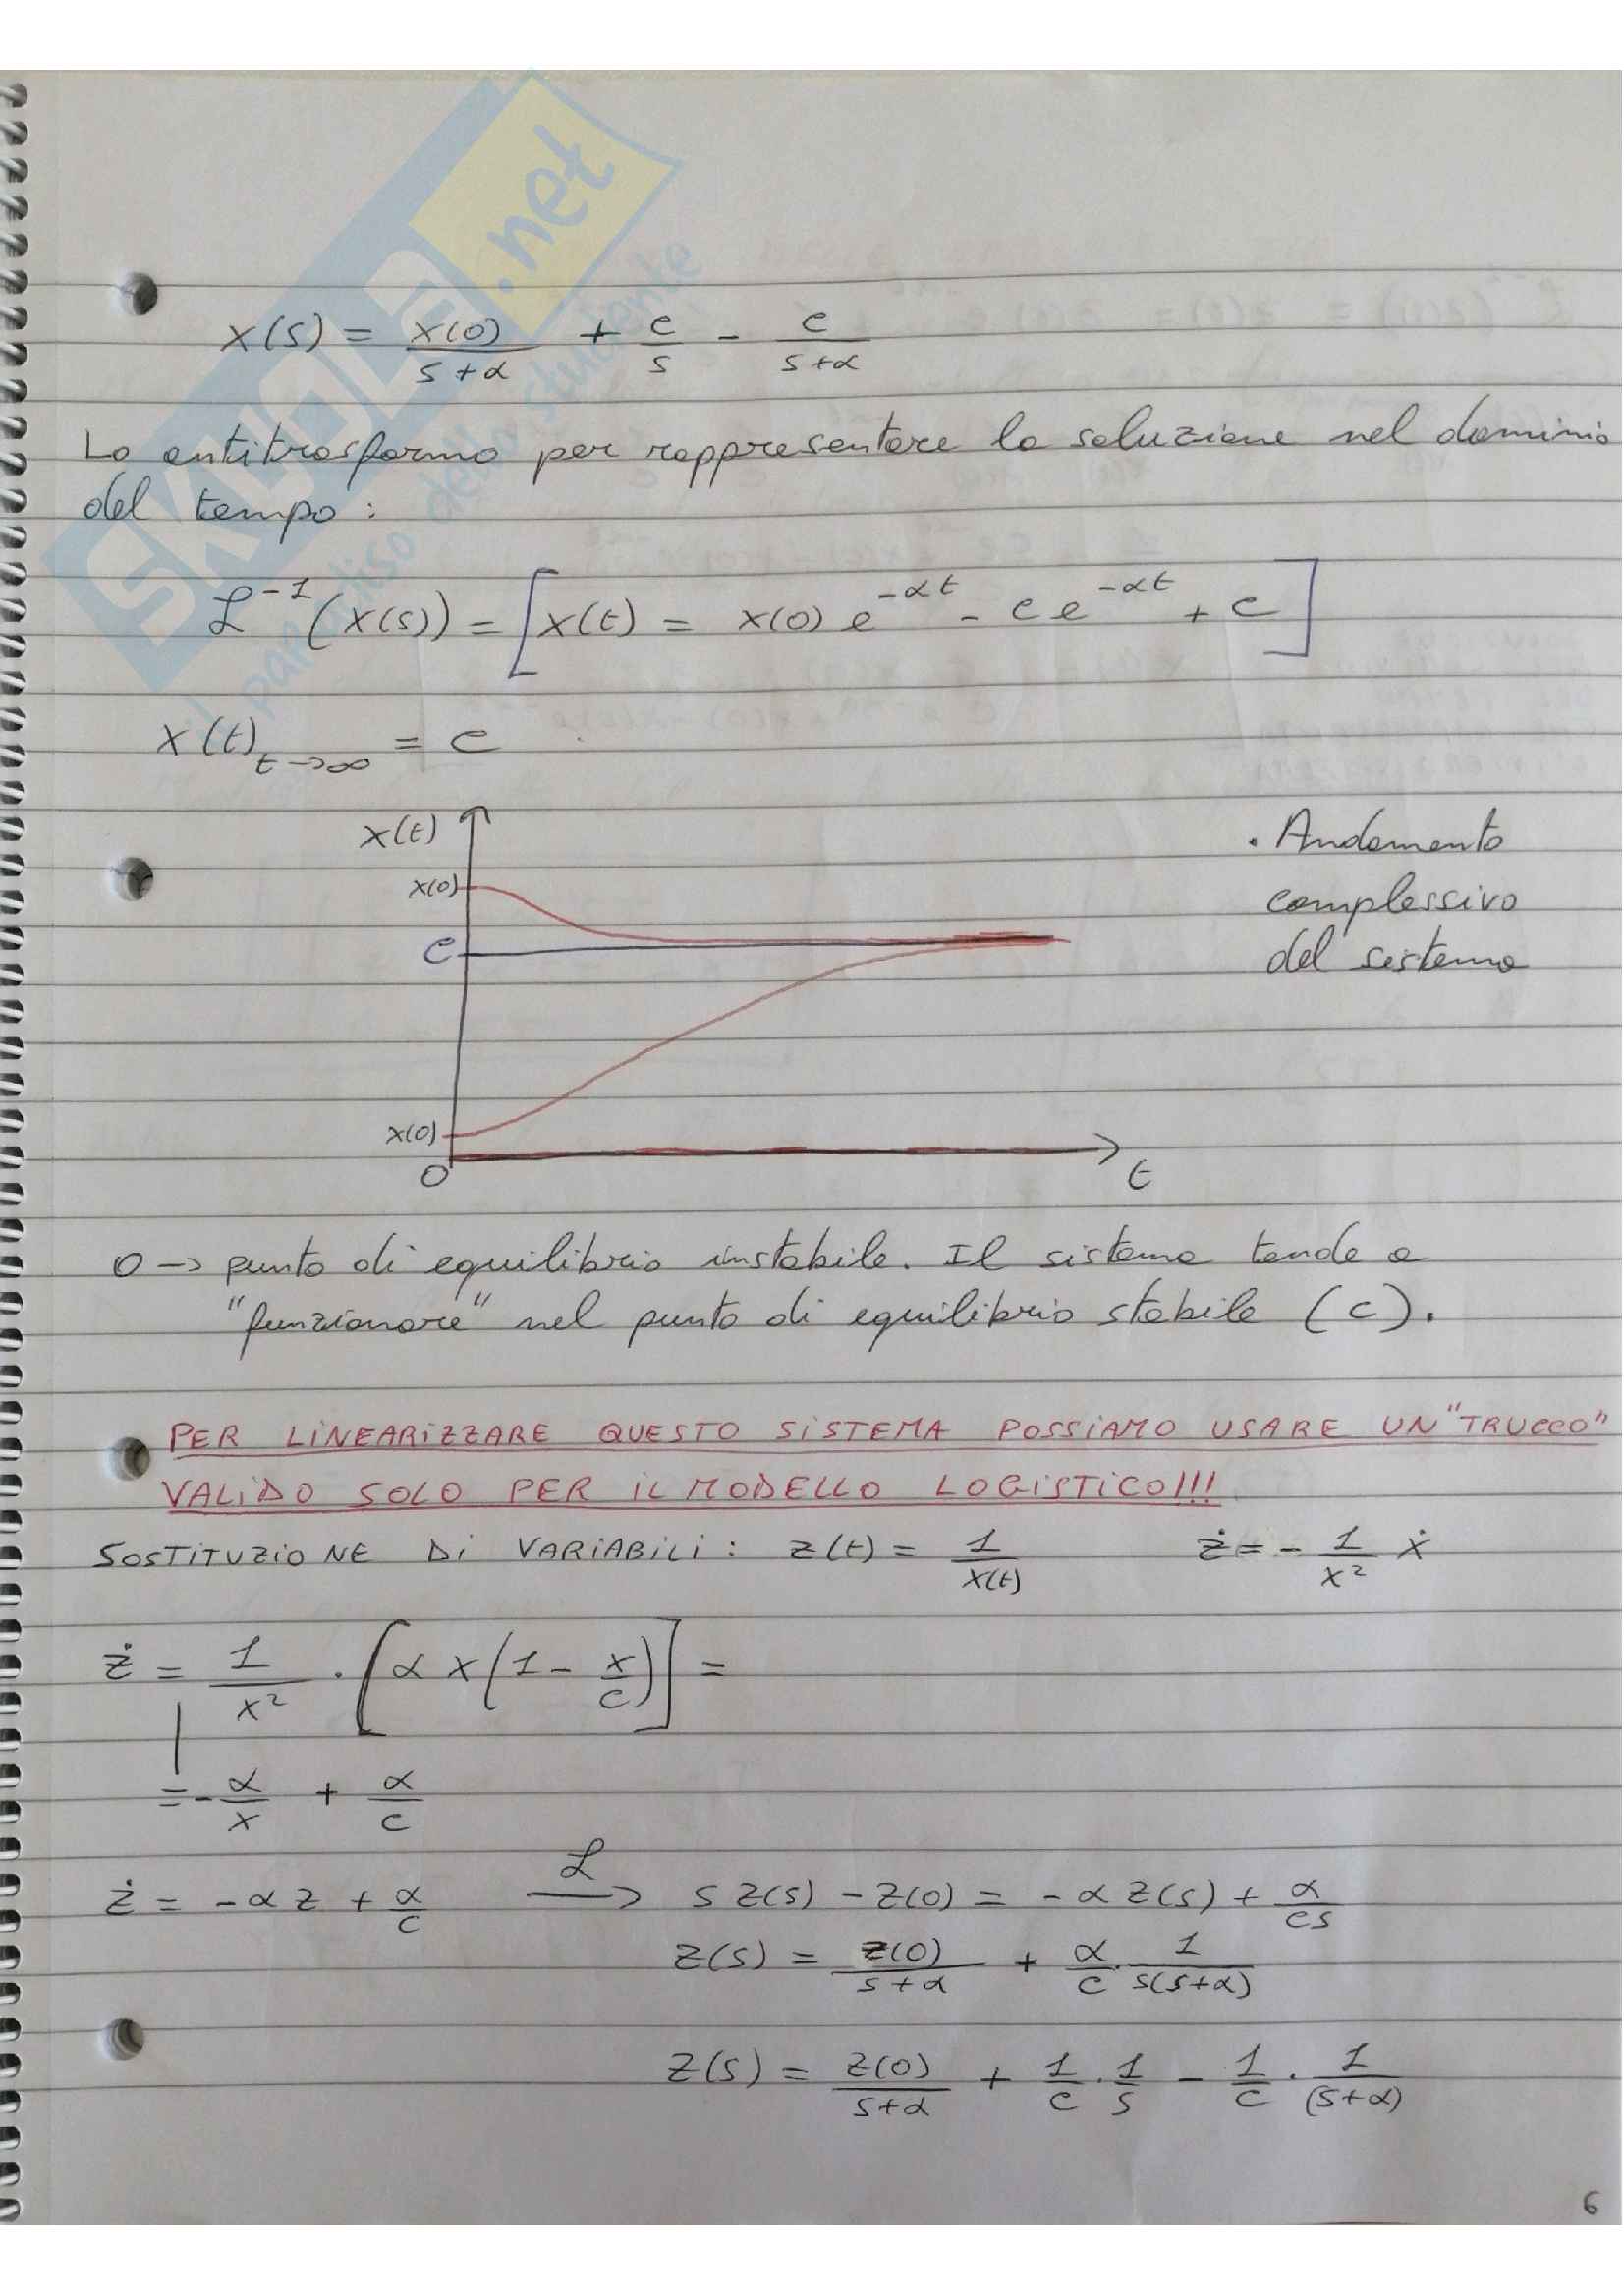 SKUOLA.net
il paradiso dello studente
X(s) = X(0)/(s+α) + c/s - c/(s+α)
La antitrasformo per rappresentare la soluzione nel dominio
del tempo :
ℒ⁻¹(X(s)) = [x(t) = x(0) e^(-αt) - c e^(-αt) + c]
X(t) t→∞ = c
x(t)
x(0)
C
x(0)
O
t
. Andamento
complessivo
del sistema
O → punto di equilibrio instabile. Il sistema tende a
"funzionare" nel punto di equilibrio stabile (c).
PER LINEARIZZARE QUESTO SISTEMA POSSIAMO USARE UN "TRUCCO"
VALIDO SOLO PER IL MODELLO LOGISTICO!!!
SOSTITUZIONE DI VARIABILI : z(t) = 1/x(t)   ż = - 1/x² ẋ
ż = 1/x² · [α x (1 - x/c)] =
= - α/x + α/c
ż = - α z + α/c   ℒ→   s Z(s) - Z(0) = - α Z(s) + α/cs
Z(s) = Z(0)/(s+α) + α/c · 1/(s(s+α))
Z(s) = Z(0)/(s+α) + 1/c · 1/s - 1/c · 1/(s+α)
6